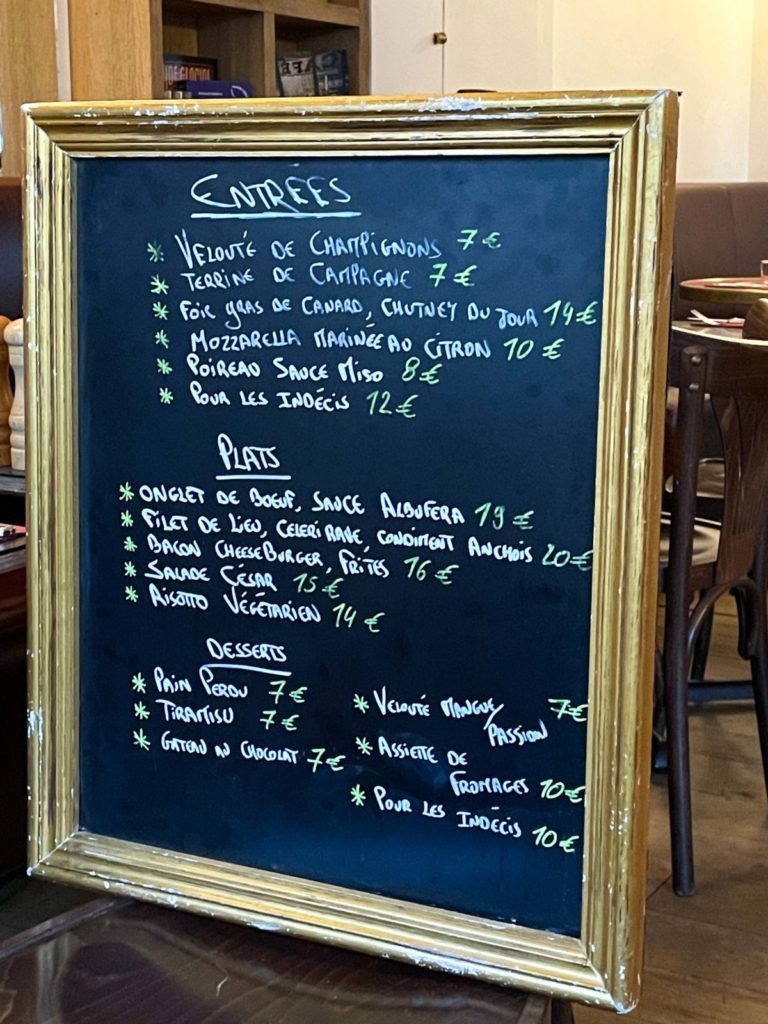 ENTREES
* VELOUTÉ DE CHAMPIGNONS 7€
* TERRINE DE CAMPAGNE 7€
* FOIE GRAS DE CANARD, CHUTNEY DU JOUR 14€
* MOZZARELLA MARINÉE AU CITRON 10€
* POIREAU SAUCE MISO 8€
* POUR LES INDÉCIS 12€
PLATS
* ONGLET DE BOEUF, SAUCE ALBUFERA 19€
* FILET DE LIEU, CELERI RAVE, CONDIMENT ANCHOIS 20€
* BACON CHEESEBURGER, FRITES 16€
* SALADE CÉSAR 15€
* RISOTTO VÉGÉTARIEN 14€
DESSERTS
* PAIN PERDU 7€
* TIRAMISU 7€
* GATEAU AU CHOCOLAT 7€
* VELOUTÉ MANGUE/ 7€
PASSION
* ASSIETTE DE
FROMAGES 10€
* POUR LES INDÉCIS
10€